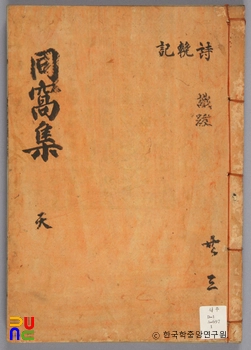 詩 輓 記
共 三
同窩集
天
ⓒ 한국학중앙연구원